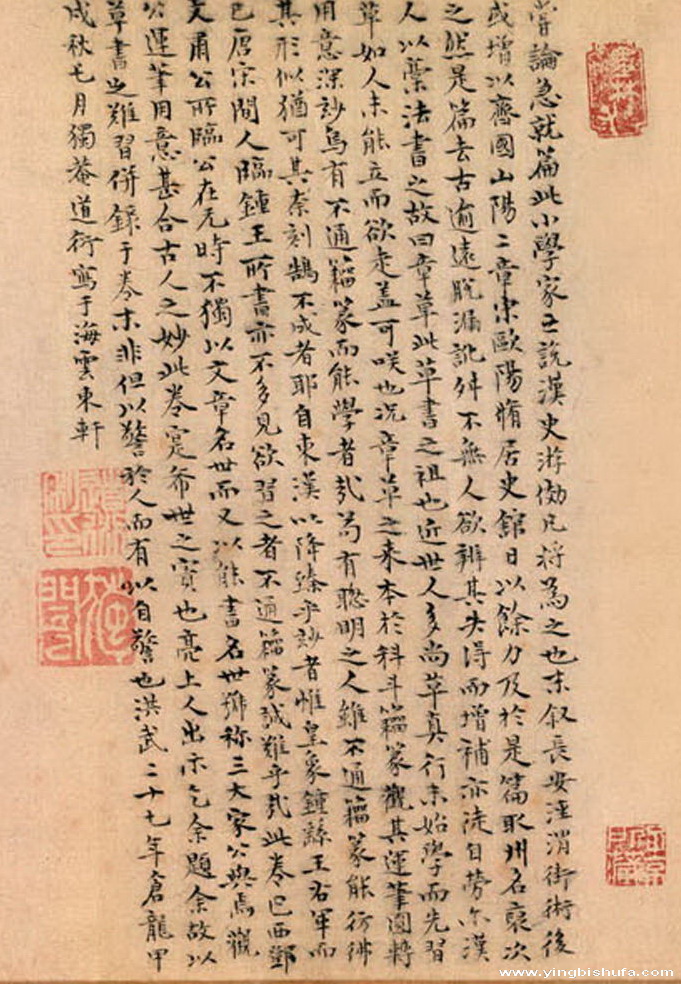 嘗論急就篇此小學家之說漢史游倣凡將為之也末叙長安涇渭街術後
或增以齊國山陽二章宋歐陽脩居史館日以餘力及於是篇取州名裒次
之然是篇去古逾遠脫漏訛舛不無人欲辨其失得而增補亦徒自勞尔漢
人以藁法書之故曰章草此草書之祖也近世人多尚草真行未始學而先習
草如人未能立而欲走盖可咲也况章草之来本於科斗籀篆觀其運筆圓轉
用意深妙烏有不通籀篆而能學者㢤苟有聰明之人雖不通籀篆能彷彿
其形似猶可其柰刻鵠不成者耶自東漢以降臻乎妙者惟皇象鍾繇王右軍而
已唐宋間人臨鍾王所書亦不多見欲習之者不通籀篆誠難乎㢤此卷巴西鄧
文肅公所臨公在元時不獨以文章名世而又以能書名世號称三大家公與焉觀
公運筆用意甚合古人之妙此卷寔希世之寶也亮上人出示乞余題余故以
草書之難習併錄于卷末非但以警於人而有以自警也洪武二十七年倉龍甲
戌秋七月獨菴道衍寫于海雲東軒
www.yingbishufa.com